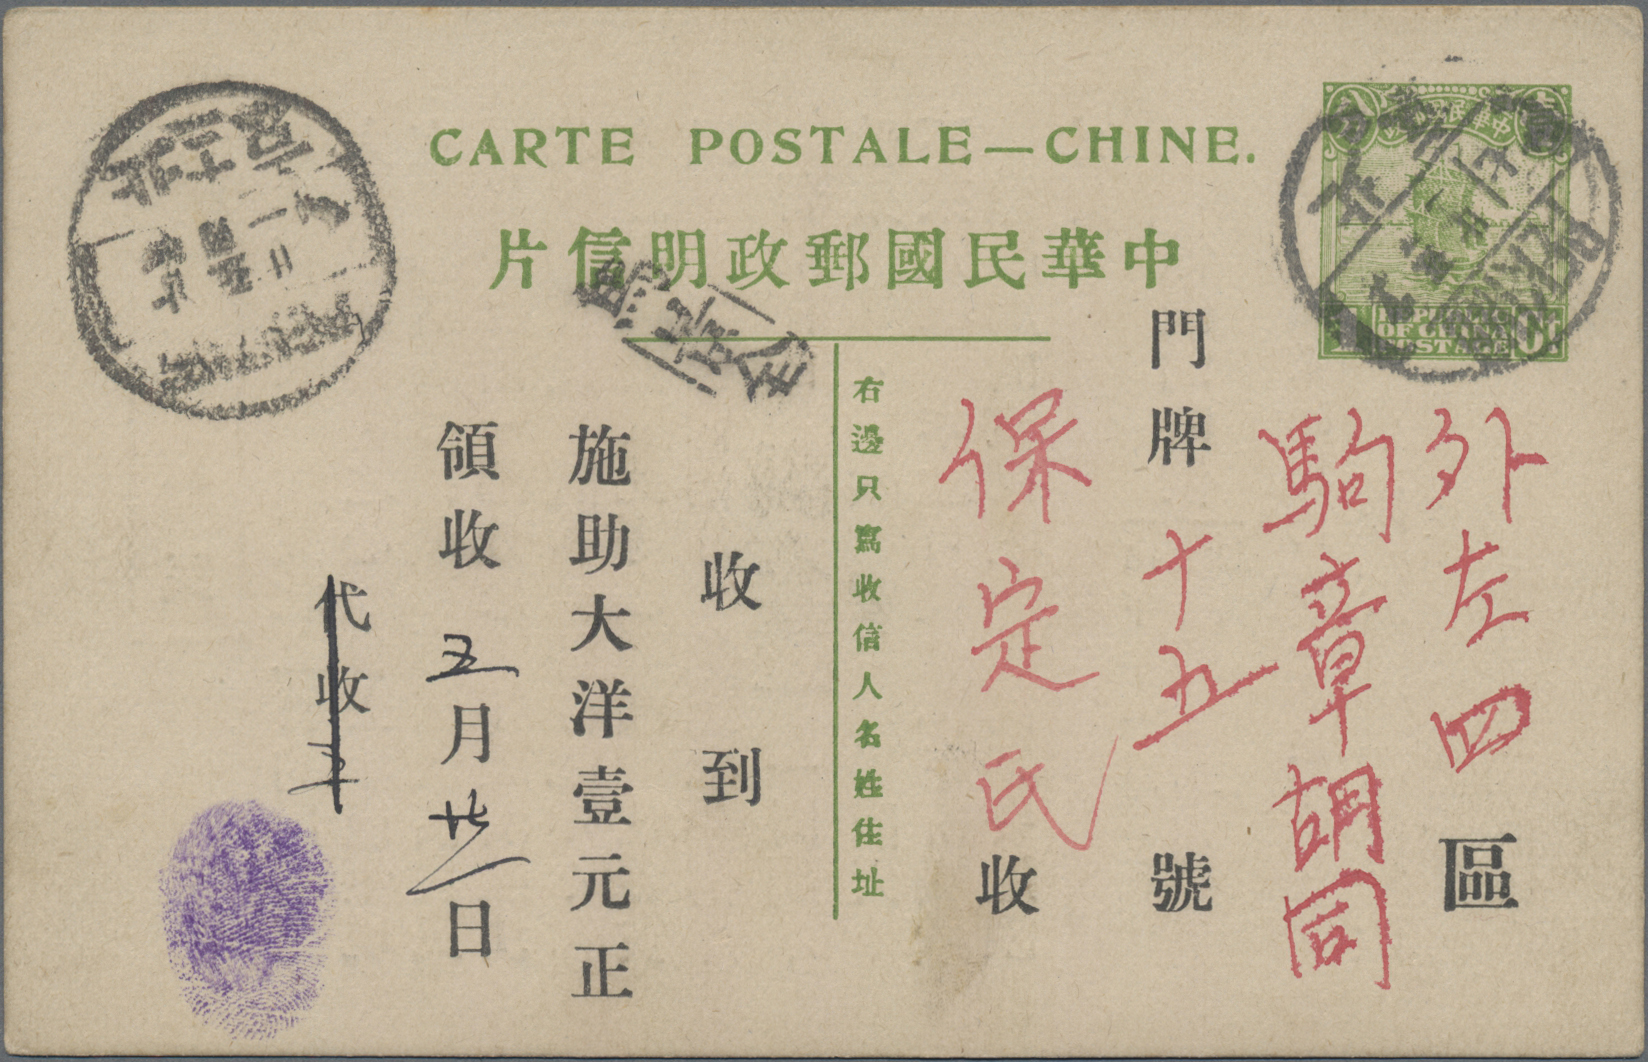 CARTE POSTALE—CHINE.
中華民國郵政明信片
外左四區
駒章胡同
門牌十五號
保定氏收
右邊只寫收信人名姓住址
收到
施助大洋壹元正
領收五月廿日
代收
REPUBLIC
OF CHINA
POSTAGE
PEKING